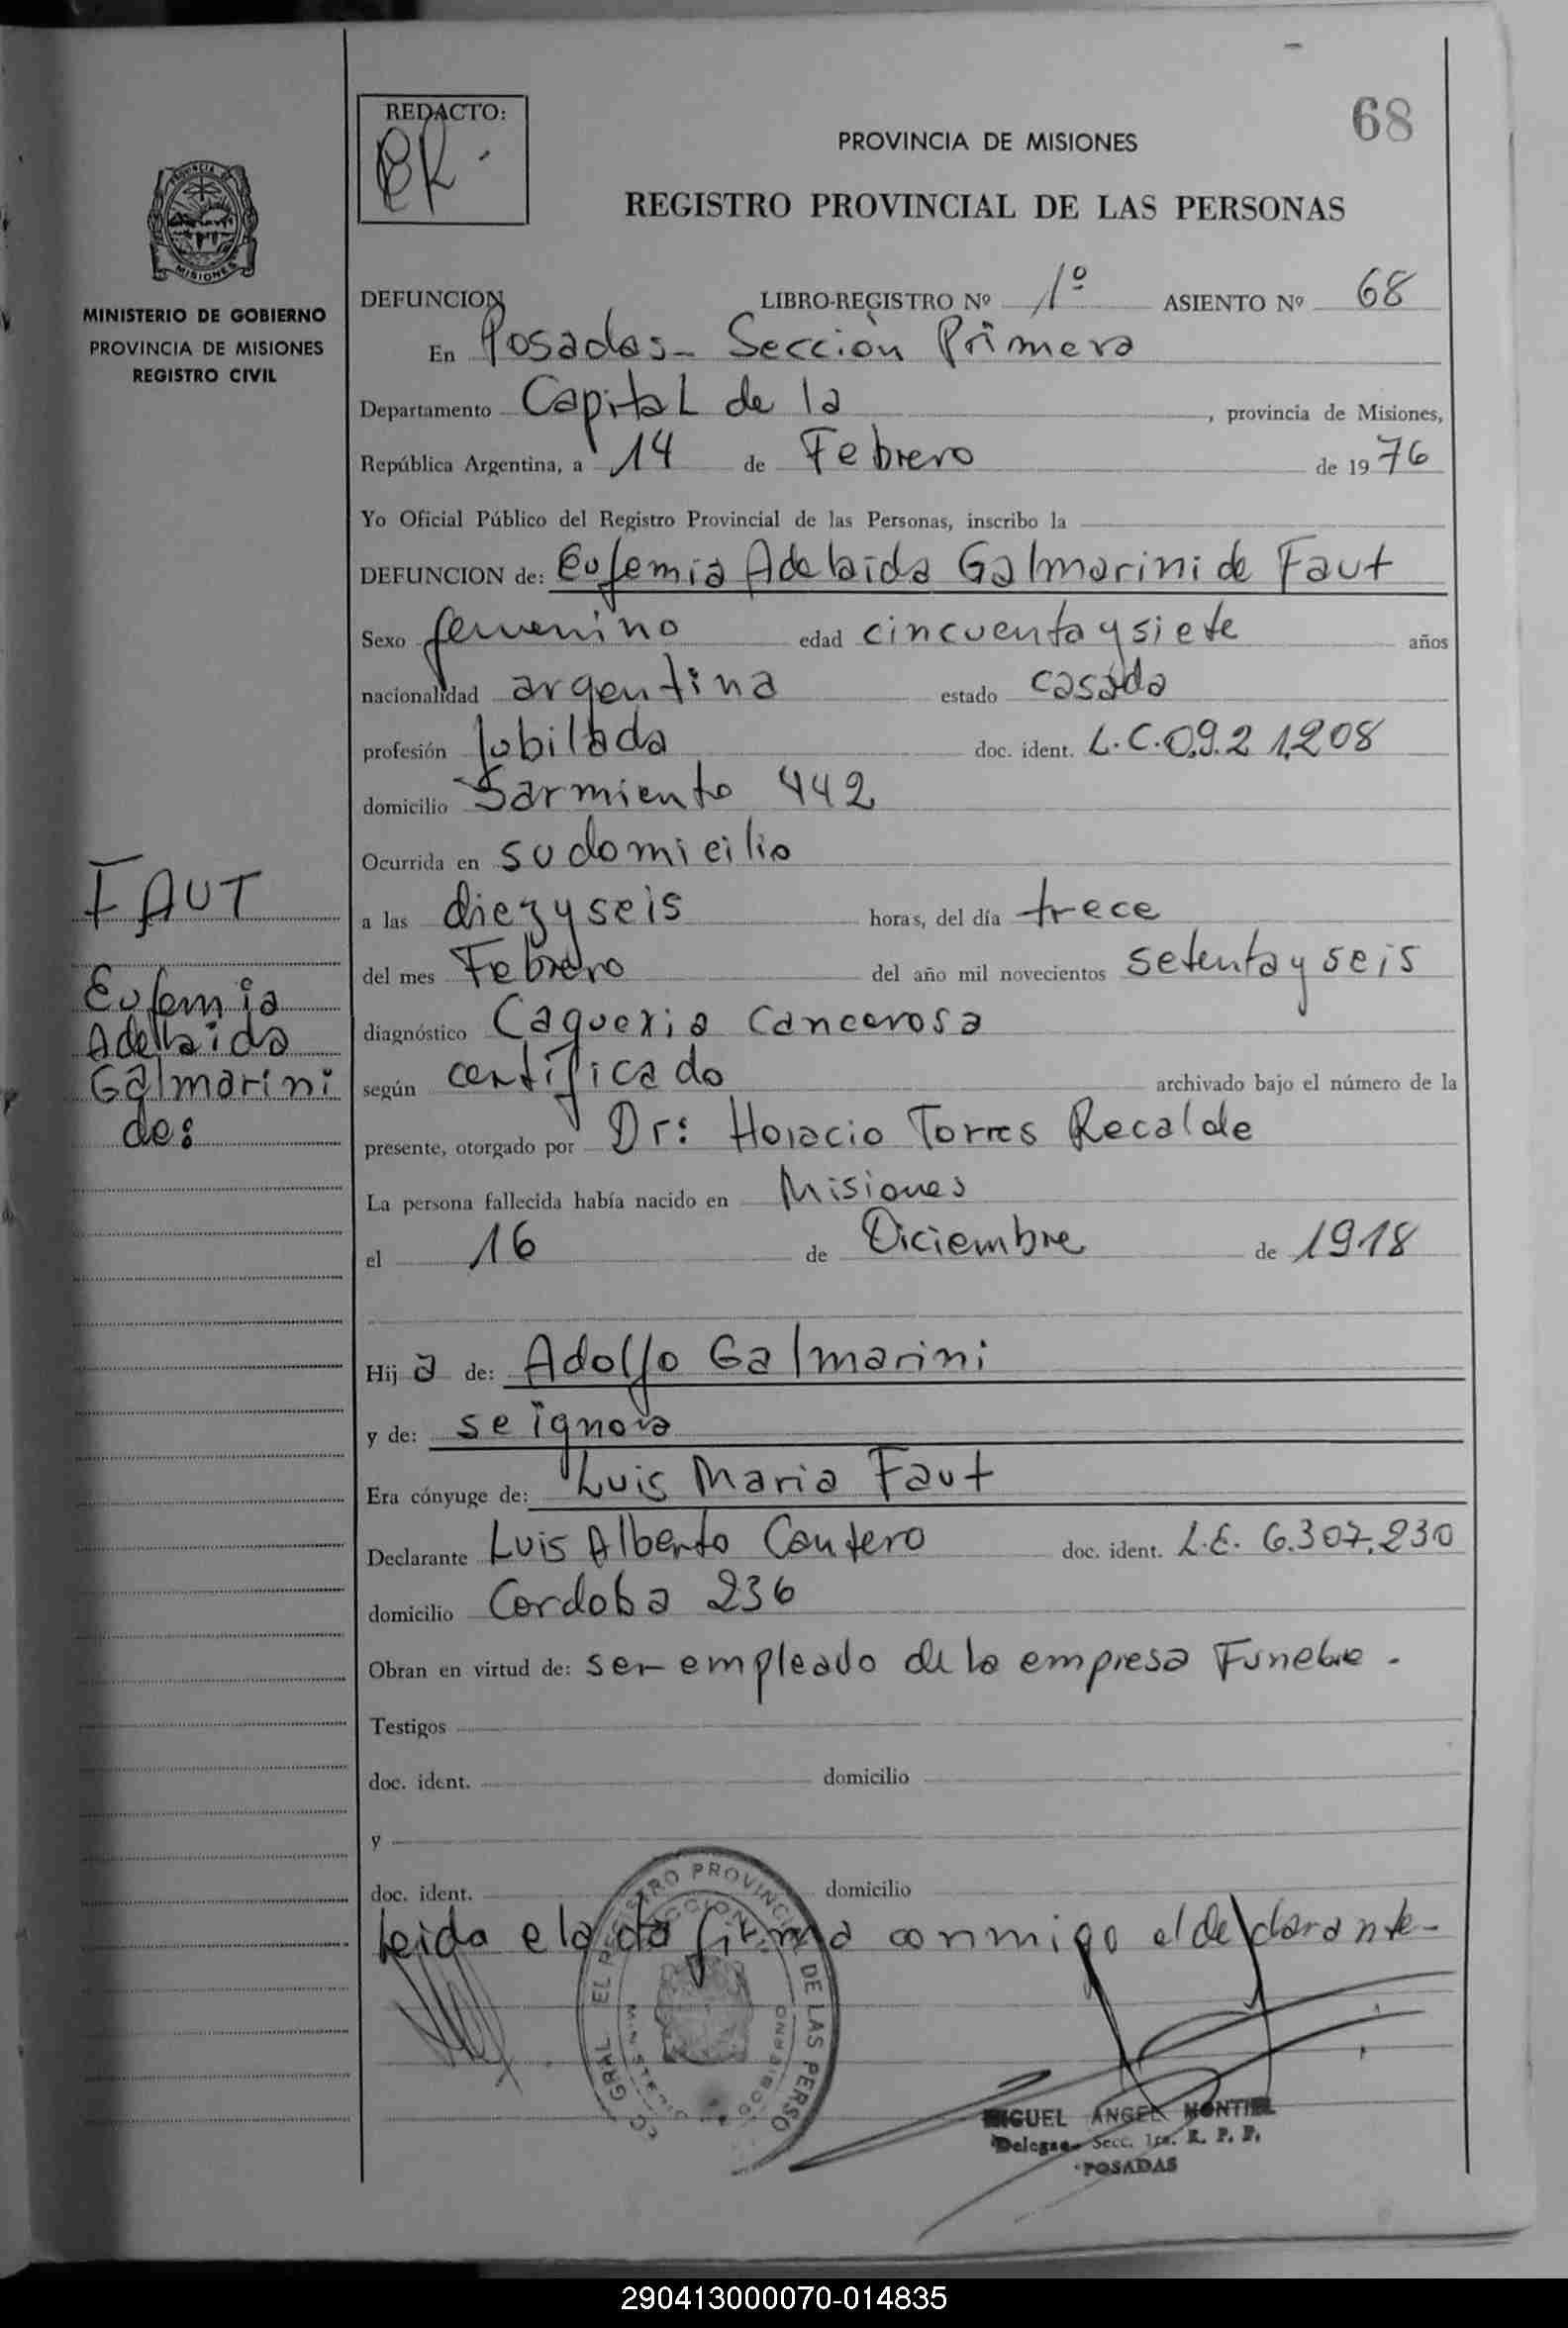 REDACTO:
68
PROVINCIA DE MISIONES
REGISTRO PROVINCIAL DE LAS PERSONAS
MISIONES
MINISTERIO DE GOBIERNO
PROVINCIA DE MISIONES
REGISTRO CIVIL
DEFUNCION LIBRO-REGISTRO Nº 1º ASIENTO Nº 68
En Posadas - Sección Primera
Departamento Capital de la , provincia de Misiones,
República Argentina, a 14 de Febrero de 1976
Yo Oficial Público del Registro Provincial de las Personas, inscribo la
DEFUNCION de: Eufemia Adelaida Galmarini de Faut
Sexo femenino edad cincuenta y siete años
nacionalidad argentina estado casada
profesión Jubilada doc. ident. L.C. 0.9.2 1.208
domicilio Sarmiento 442
Ocurrida en su domicilio
a las diez y seis horas, del día trece
del mes Febrero del año mil novecientos setenta y seis
diagnóstico Caquexia Cancerosa
según certificado archivado bajo el número de la
presente, otorgado por Dr: Horacio Torres Recalde
La persona fallecida había nacido en Misiones
el 16 de Diciembre de 1918
Hija de: Adolfo Galmarini
y de: se ignora
Era cónyuge de: Luis Maria Faut
Declarante Luis Alberto Cantero doc. ident. L.E. 6.307.230
domicilio Cordoba 236
Obran en virtud de: ser empleado de la empresa Funebre.
Testigos
doc. ident. domicilio
y
doc. ident. domicilio
Leida e la da firma conmigo el declarante-
FAUT
Eufemia
Adelaida
Galmarini
de:
EL REGISTRO PROVINCIAL DE LAS PERSO
MIGUEL ANGEL MONTIEL
Delegado Secc. 1ra. R. P. P.
POSADAS
290413000070-014835